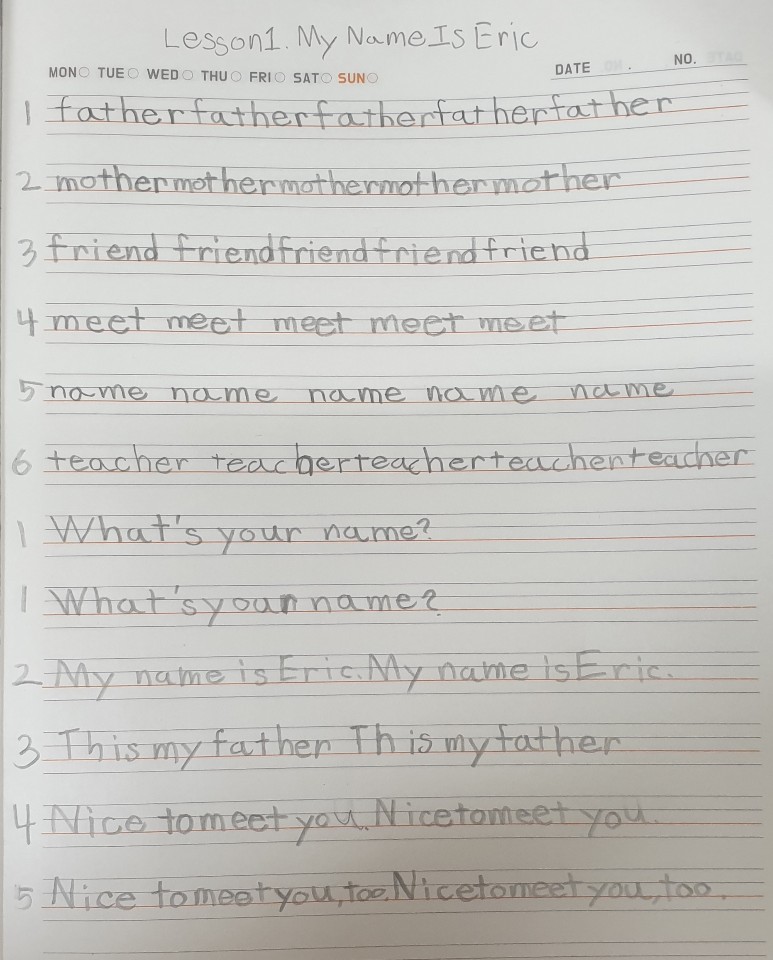 Lesson1. My Name Is Eric
MON TUE WED THU FRI SAT SUN DATE . NO.
1 father father father father father
2 mother mother mother mother mother
3 friend friend friend friend friend
4 meet meet meet meet meet
5 name name name name name
6 teacher teacher teacher teacher teacher
1 What's your name?
1 What's your name?
2 My name is Eric. My name is Eric.
3 This my father Th is my father
4 Nice to meet you. Nice to meet you.
5 Nice to meet you, too. Nice to meet you, too.